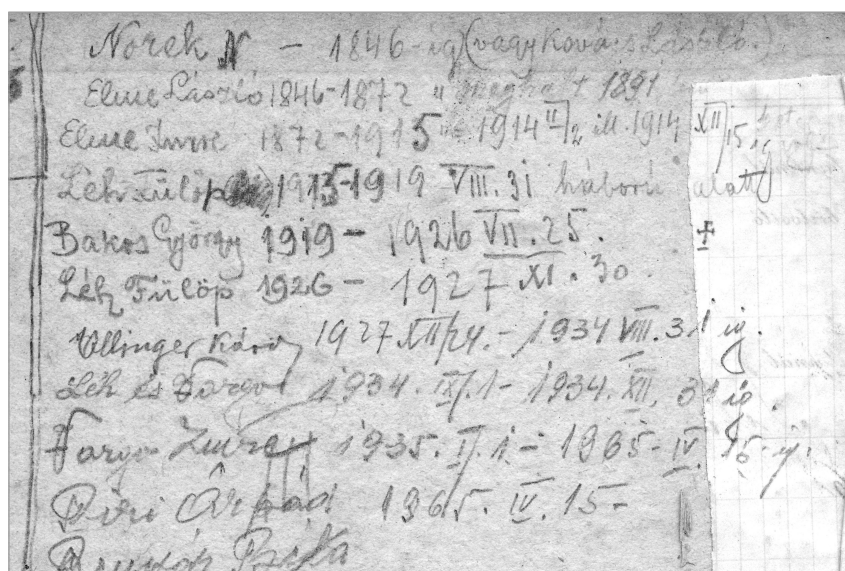 Norek N – 1846-ig (vagy Kovács László.)
Elme László 1846-1872 " meghalt 1891
Elme Imre 1872-1915 1914 II/2 ill. 1914 XII/15 ig
Léh Fülöp 1915-1919 VIII. 31 háború alatt
Bakos György 1919 – 1926 VII. 25. ‡
Léh Fülöp 1926 – 1927 XI. 30.
Ullinger Károly 1927 XII/24. – 1934 VIII. 31 ig.
Léh és Varga 1934. IX/.1 – 1934. XII. 31 ig.
Varga Imre 1935. I/.1. – 1965. IV. 15-ig.
Piri Árpád 1965. IV. 15-